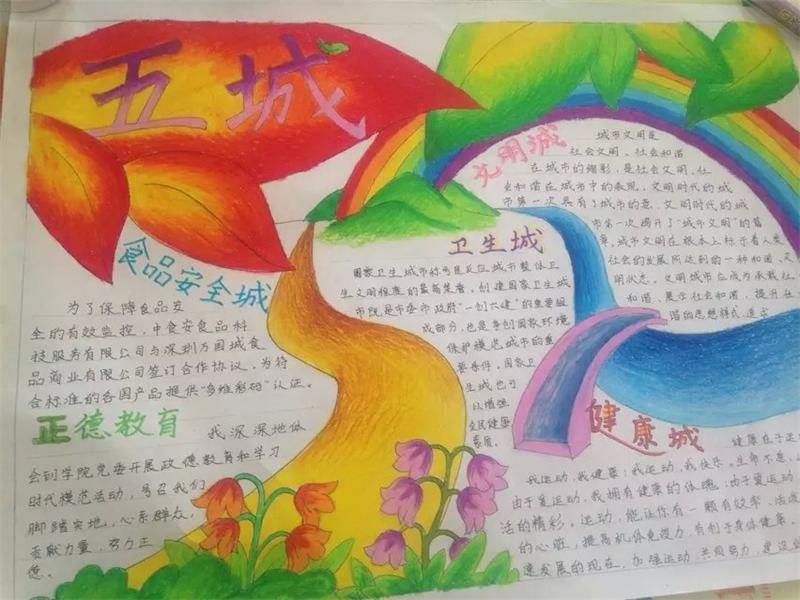 五城
食品安全城
为了保障食品安
全的有效监控，中食安食品科
技服务有限公司与深圳万国城食
品商业有限公司签订合作协议，为符
合标准的各国产品提供“多维彩码”认证。
正德教育
我深深地体
会到学院党委开展政德教育和学习
时代模范活动，号召我们
脚踏实地，心系群众，
贡献力量，努力正
德。
文明城
城市文明是
社会文明、社会和谐
在城市的缩影，是社会文明、社
会和谐在城市中的表现，文明时代的城
市第一次具有了城市的是，文明时代的城
市第一次揭开了“城市文明”的篇
章，城市文明在根本上标示着人类
社会的发展所达到的一种和谐、文
明状态，文明城市应成为承载社
和谐、展示社会和谐，提升在
谐的思想样式
卫生城
国家卫生城市的
城市整体卫
生文明程度的最高荣誉，创建国家卫生城
市既是市委市政府“一创六建”的重要组
成部分，也是争创国家环境
保护模范城市的重
要条件，国家卫
生城也可
以增强
全民健康
素质。
健康城
健康在于运
我运动，我健康；我运动，我快乐。生命不息，
由于爱运动，我拥有健康的体魂；由于爱运动，
活的精彩。运动，能让你有一颗有效率、活
的心脏，提高机体免疫力，有利于身体健康。
速发展的现在，加强运动，共同努力，建设